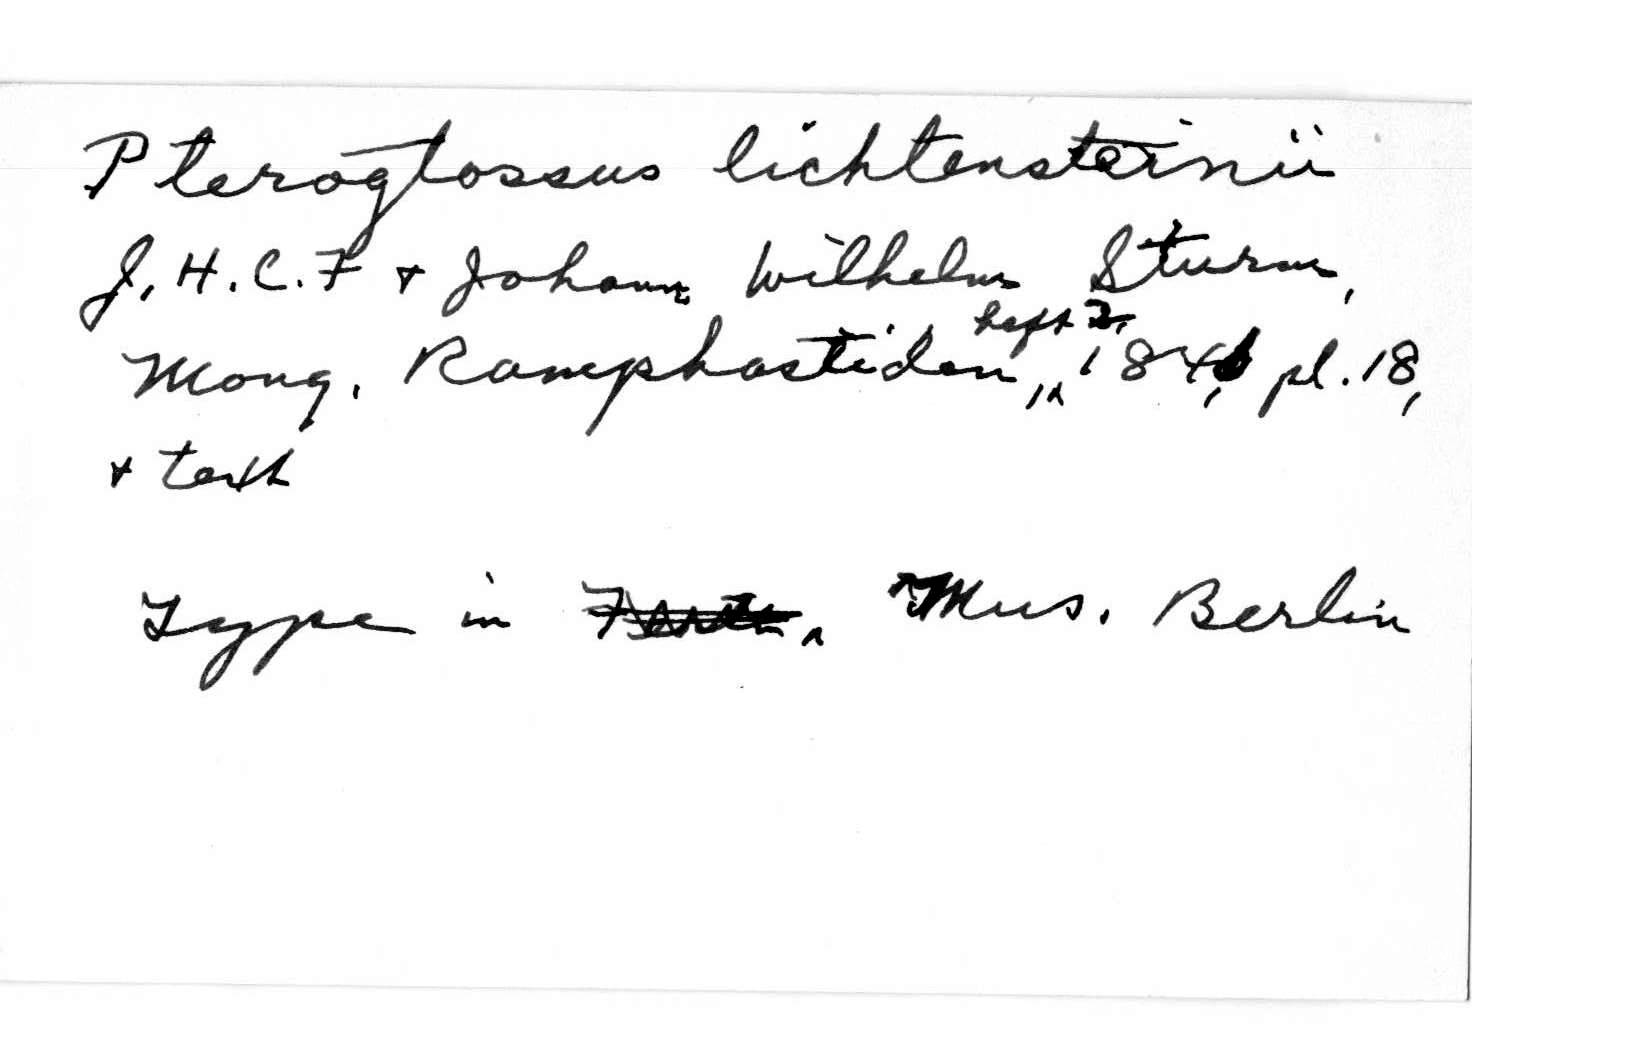 Pteroglossus lichtensteinii
J. H. C. F & Johann Wilhelm Sturm,
Monog. Ramphastiden, heft 2, 1841, pl. 18,
& text
Type in Mus. Berlin